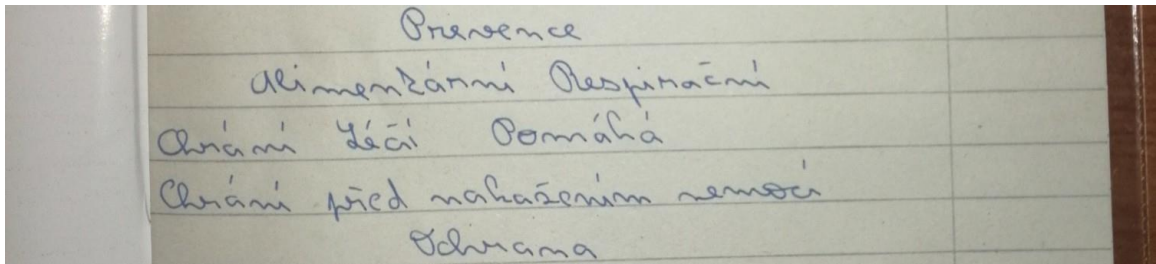 Prevence
Alimentární Respirační
Chrání Léčí Pomáhá
Chrání před nakažením nemocí
Ochrana